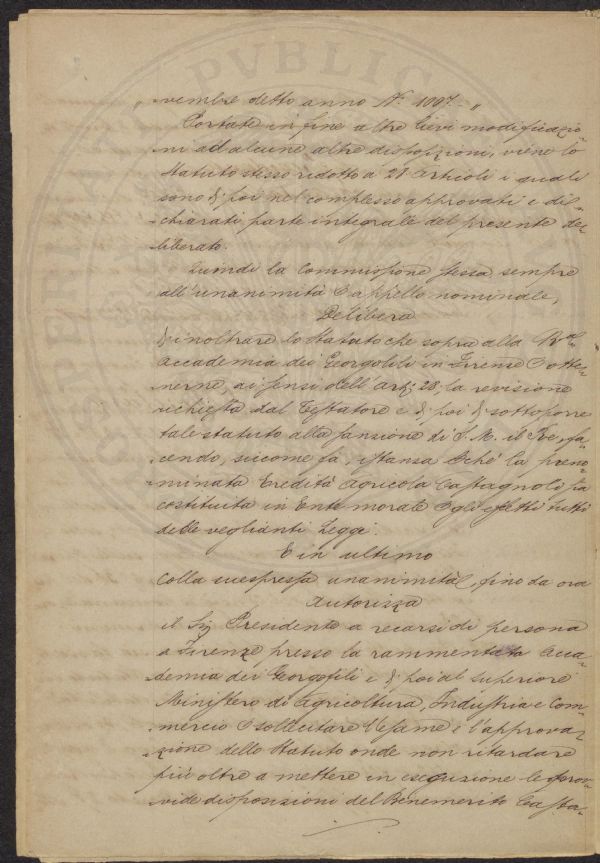 vembre detto anno N. 1007 „
Portate in fine altre lievi modificazio
ni ad alcune altre disposizioni, viene lo
Statuto stesso ridotto a 28 articoli i quali
sono di poi nel complesso approvati e di-
chiarati parte integrale del presente de-
liberato.
Quindi la Commissione stessa sempre
all'unanimità e appello nominale,
Delibera
d'inoltrare lo Statuto che sopra alla Rel
Accademia dei Georgofili in Firenze e otte-
nerne, ai sensi dell'art. 28, la revisione
richiesta dal Testatore e di poi di sottoporre
tale statuto alla sanzione di S. M. il Re, fa-
cendo, siccome fa, istanza perché la preno-
minata Eredità Agricola Castagnoli sia
costituita in Ente morale e gli effetti tutti
delle veglianti Leggi.
E in ultimo
colla suespressa unanimità, fino da ora
Autorizza
il Sig Presidente a recarsi di persona
a Firenze presso la rammentata Acca-
demia dei Georgofili e di poi al superiore
Ministero di Agricoltura, Industria e Com-
mercio e sollecitare l'esame e l'approva-
zione dello Statuto onde non ritardare
più oltre a mettere in esecuzione le prov-
vide disposizioni del Benemerito Casta-
PVBLIC